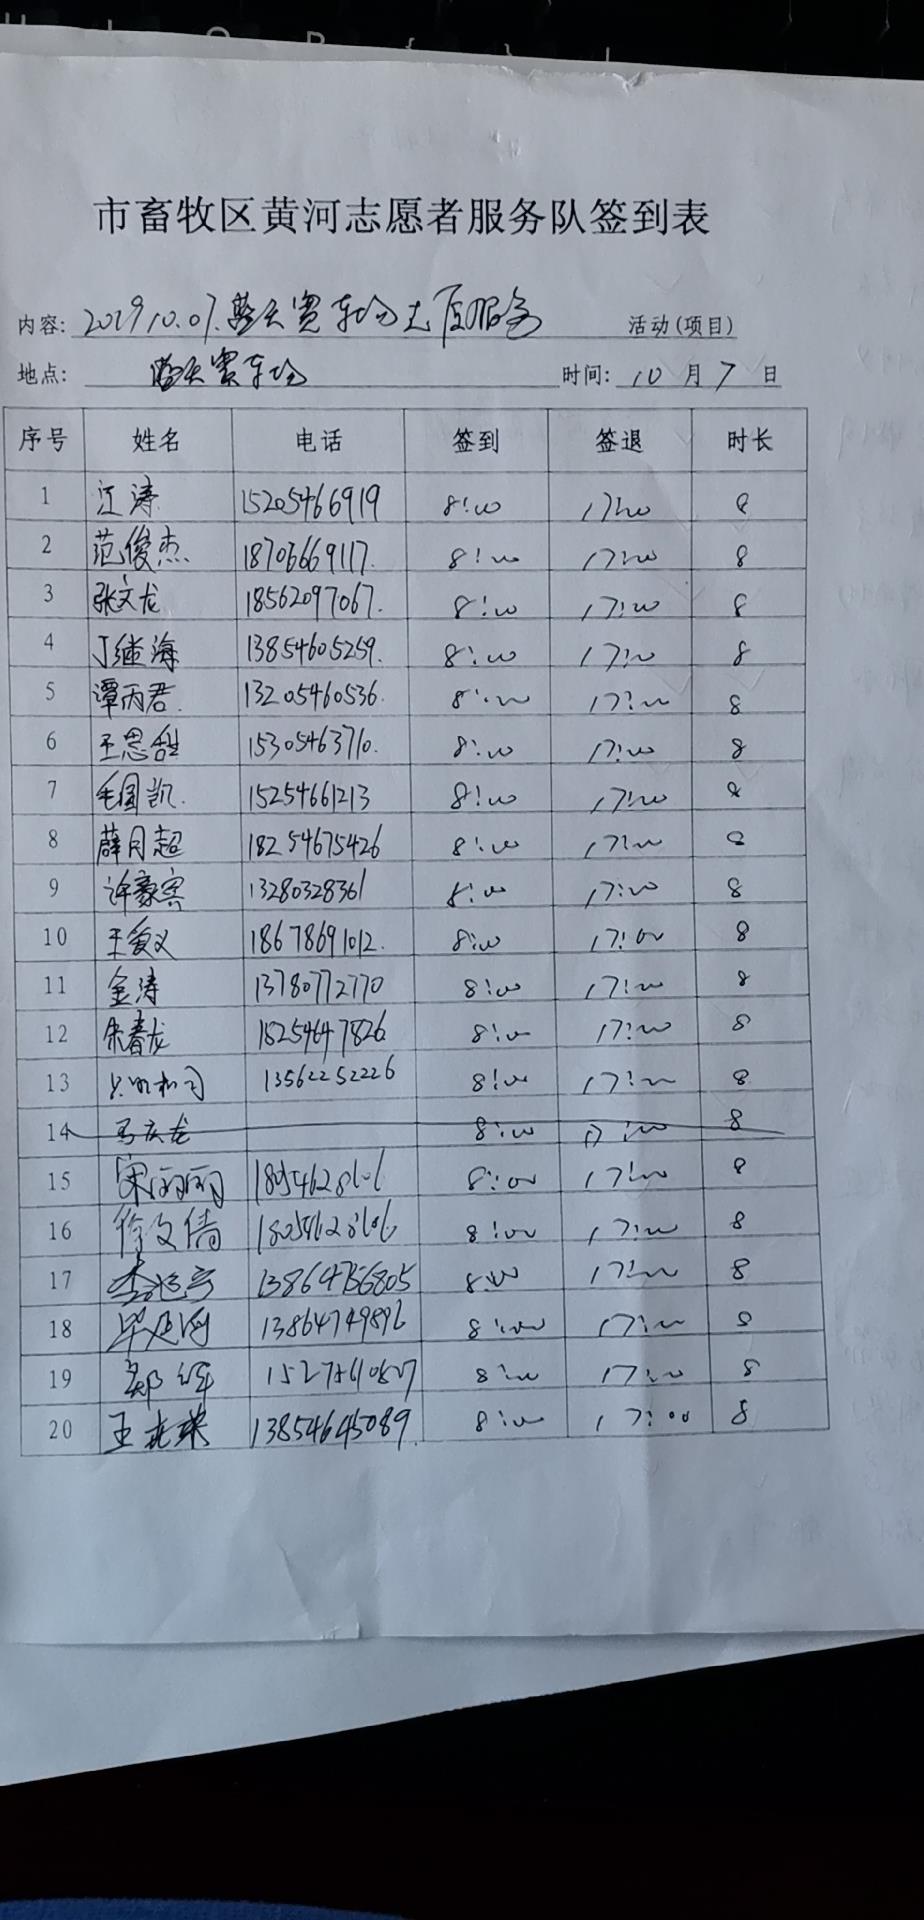 市畜牧区黄河志愿者服务队签到表
内容: 2019.10.07.蓝天赛车场志愿服务 活动(项目)
地点: 蓝天赛车场 时间: 10 月 7 日
序号 姓名 电话 签到 签退 时长
1 江涛 15205466919 8:00 17:00 8
2 范俊杰 18706669117. 8:00 17:00 8
3 张文龙 18562097067. 8:00 17:00 8
4 丁继海 13854605259. 8:00 17:00 8
5 谭丙君. 13205460536. 8:00 17:00 8
6 王思甜 15305463710. 8:00 17:00 8
7 毛国凯. 15254661213 8:00 17:00 8
8 薛月超 18254675426 8:00 17:00 8
9 许豪宾 13280328361 8:00 17:00 8
10 王爱义 18678691012. 8:00 17:00 8
11 金涛 13780772770 8:00 17:00 8
12 朱春龙 18254647826 8:00 17:00 8
13 13562252226 8:00 17:00 8
14 马庆龙 8:00 17:00 8
15 宋丽丽 8:00 17:00 8
16 徐文倩 8:00 17:00 8
17 13864756805 8:00 17:00 8
18 13864749896 8:00 17:00 8
19 郑 8:00 17:00 8
20 王 13854645089. 8:00 17:00 8